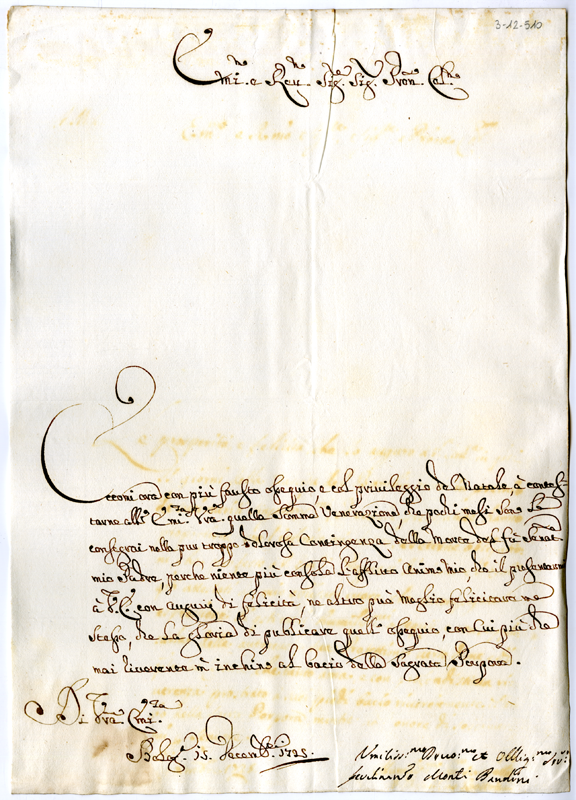 3-12-510
Em.i e Reu. Sig. Sig. Pron. Col.
Eccomi ora con più fausto ossequio, e col privileggio del Natale, à contes-
tarne all' Em.za Vra quella somma Venerazione, che pochi mesi sono Le
consegrai nella pur troppo dolorosa Contingenza della Morte del fù Senat.
mio Padre, perche niente più consola l'afflitto Animo mio, che il presentarmi
à V.E. con augurij di felicità, ne altro può meglio felicitare me
stesso, che la gloria di publicare quell' ossequio, con cui più che
mai riverente m'inchino al bacio della Sagrata Porpora.
Di Vra Em.za
Bolog.a 15. Decemb. 1725.
Umiliss.mo Deuo.mo et Obblig.mo Ser.
Ferdinando Monti Bendini